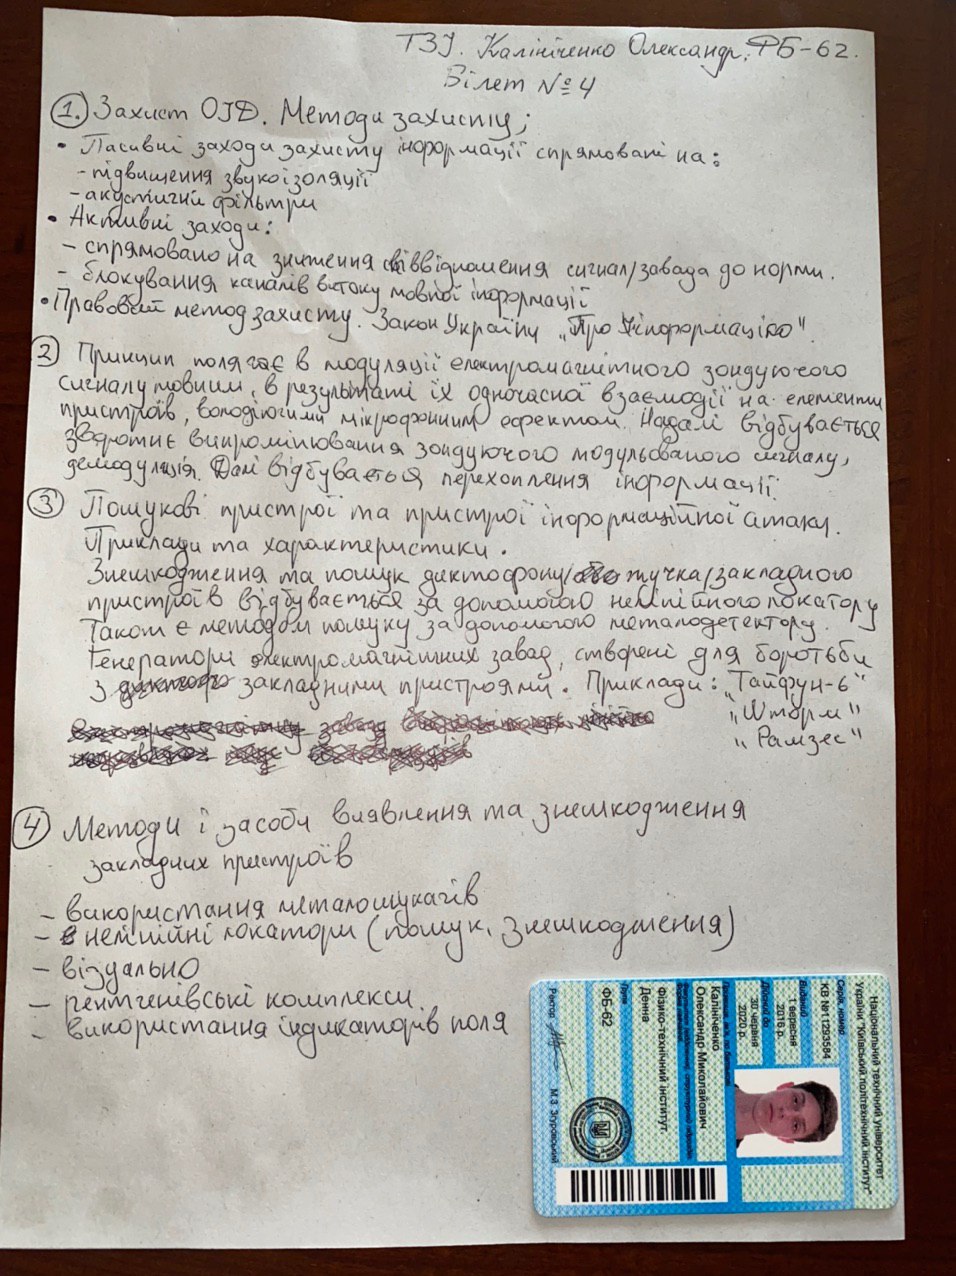 ТЗІ. Калініченко Олександр. ФБ-62.
Білет №4
1. Захист ОІД. Методи захисту;
• Пасивні заходи захисту інформації спрямовані на:
- підвищення звукоізоляції
- акустичні фільтри
• Активні заходи:
- спрямовано на зниження співвідношення сигнал/завада до норми.
- блокування каналів витоку мовної інформації
• Правовий метод захисту. Закон України „Про інформацію".
2 Принцип полягає в модуляції електромагнітного зондуючого
сигналу мовним, в результаті їх одночасної взаємодії на елементи
пристроїв, володіючими мікрофонним ефектом. Надалі відбувається
зворотнє випромінювання зондуючого модульованого сигналу,
демодуляція. Далі відбувається перехоплення інформації.
3 Пошукові пристрої та пристрої інформаційної атаки.
Приклади та характеристики.
Знешкодження та пошук диктофону/жучка/закладного
пристроїв відбувається за допомогою нелінійного локатору
Також є методом пошуку за допомогою металодетектору.
Генератори електромагнітних завад, створені для боротьби
з закладними пристроями. Приклади: „Тайфун-6"
„Шторм"
„Рамзес"
4 Методи і засоби виявлення та знешкодження
закладних пристроїв
- використання металошукачів
- нелінійні локатори (пошук, знешкодження)
- візуально
- рентгенівські комплекси.
- використання індикаторів поля
Національний технічний університет
України "Київський політехнічний інститут"
Серія, номер
КВ №11293584
Виданий
1 вересня
2016 р.
Дійсний до
30 червня
2020 р.
Калініченко
Олександр Миколайович
Фізико-технічний інститут,
Денна
Група
ФБ-62
Ректор
М.З. Згуровський